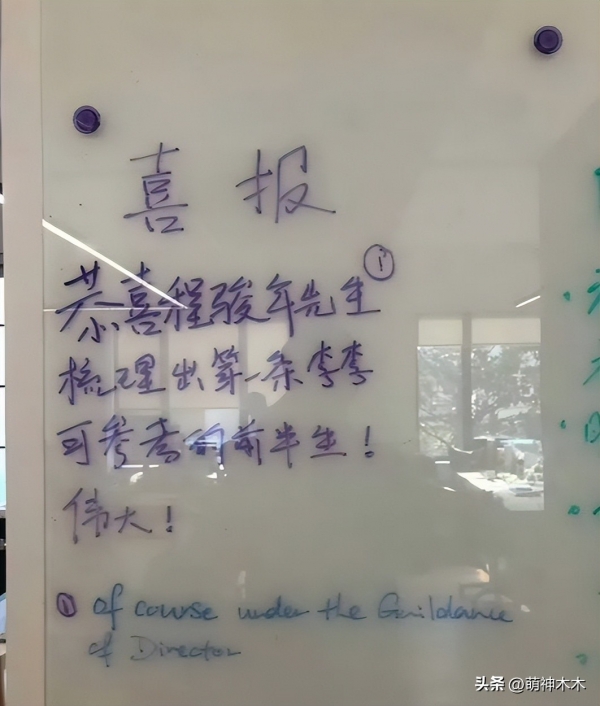 喜报
恭喜程骏年先生①
梳理出第一条李李
可参考的前半生！
伟大！
① Of course under the Guildance
of Director
头条 @萌神木木